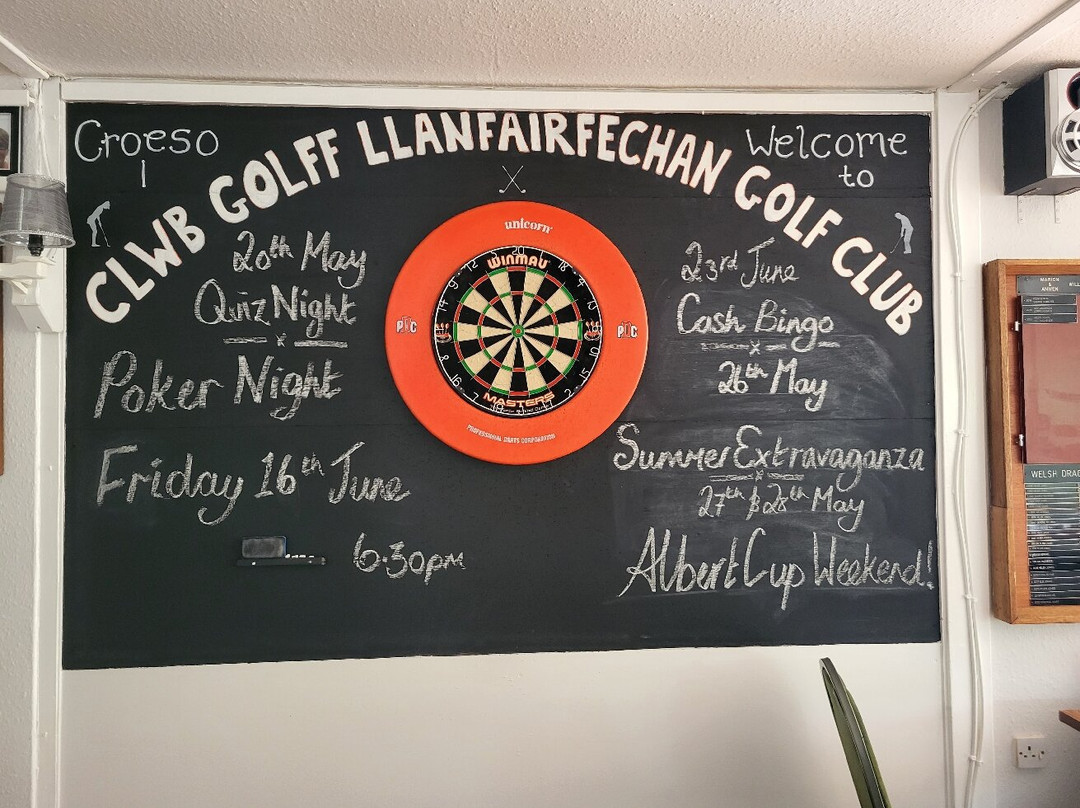 Croeso
I
Welcome
to
CLWB GOLFF LLANFAIRFECHAN GOLF CLUB
20th May
Quiz Night
x
Poker Night
Friday 16th June
6.30pm
unicorn
WINMAU
20
12
18
9
4
14
13
8
10
16
15
7
2
MASTERS
PDC
PDC
PROFESSIONAL DARTS CORPORATION
23rd June
Cash Bingo
x
26th May
Summer Extravaganza
x
27th & 28th May
Albert Cup Weekend!
MARION &
ANWEN
WELSH DRA